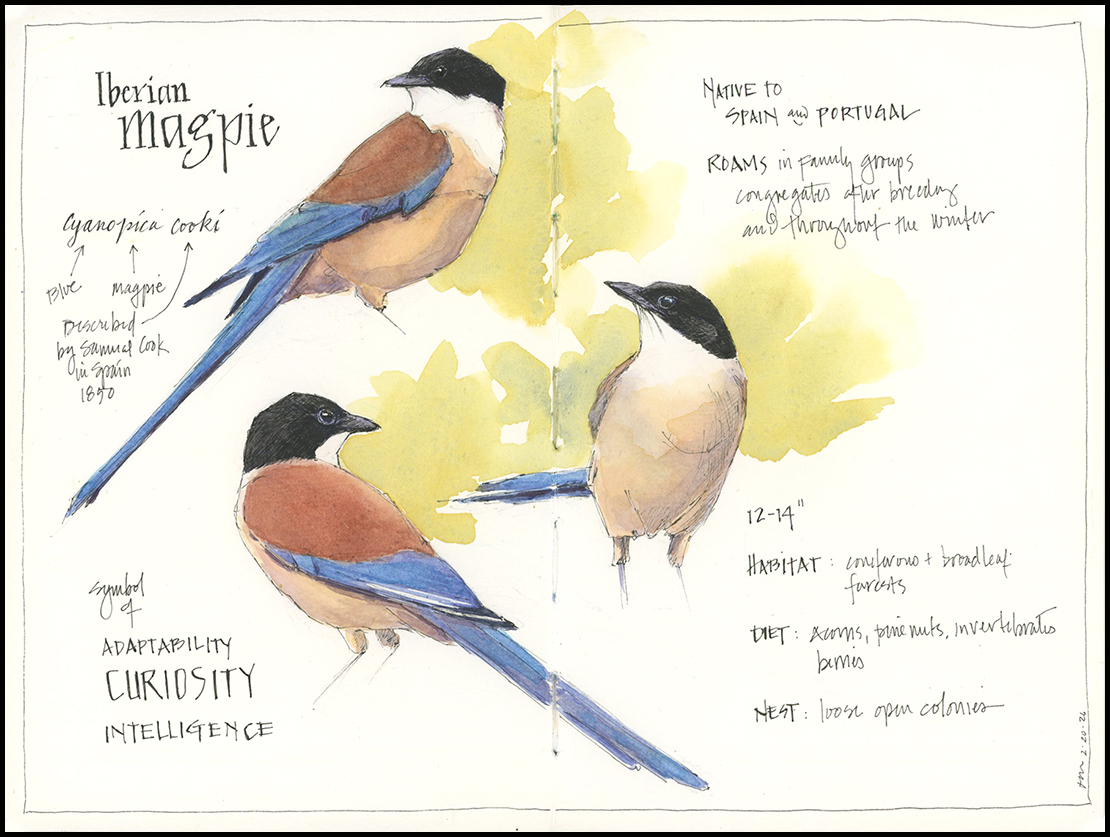 Iberian
magpie
Cyanopica cooki
Blue
magpie
Described
by Samual Cook
in Spain
1850
Symbol
of
ADAPTABILITY
CURIOSITY
INTELLIGENCE
NATIVE TO
SPAIN and PORTUGAL
ROAMS in family groups
congregates after breeding
and throughout the winter
12-14"
HABITAT: coniferous + broadleaf
forests
DIET: acorns, pine nuts, invertebrates
berries
NEST: loose open colonies
2.20.26